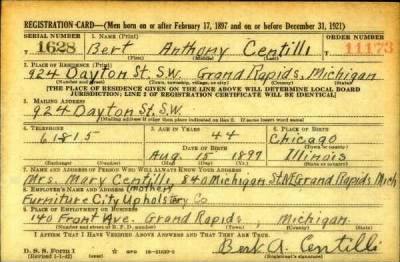 REGISTRATION CARD—(Men born on or after February 17, 1897 and on or before December 31, 1921)
SERIAL NUMBER 1. NAME (Print) ORDER NUMBER
T 1628 Bert Anthony Centilli T 11173
(First) (Middle) (Last)
2. PLACE OF RESIDENCE (Print)
924 Dayton St. S.W. Grand Rapids, Michigan
(Number and street) (Town, township, village, or city) (County) (State)
[THE PLACE OF RESIDENCE GIVEN ON THE LINE ABOVE WILL DETERMINE LOCAL BOARD
JURISDICTION; LINE 2 OF REGISTRATION CERTIFICATE WILL BE IDENTICAL]
3. MAILING ADDRESS
924 Dayton St. S.W.
(Mailing address if other than place indicated on line 2. If same insert word same)
4. TELEPHONE 5. AGE IN YEARS 6. PLACE OF BIRTH
61815 44 Chicago
DATE OF BIRTH (Town or county)
Aug. 15 1897 Illinois
(Exchange) (Number) (Mo.) (Day) (Yr.) (State or country)
7. NAME AND ADDRESS OF PERSON WHO WILL ALWAYS KNOW YOUR ADDRESS
Mrs. Mary Centilli, 840 Michigan St. NE Grand Rapids, Mich
8. EMPLOYER'S NAME AND ADDRESS (mother)
Furniture City Upholstery Co.
9. PLACE OF EMPLOYMENT OR BUSINESS
140 Front Ave. Grand Rapids, Michigan
(Number and street or R. F. D. number) (Town) (County) (State)
I AFFIRM THAT I HAVE VERIFIED ABOVE ANSWERS AND THAT THEY ARE TRUE.
D. S. S. Form 1
(Revised 1-1-42) (over) Bert A. Centilli